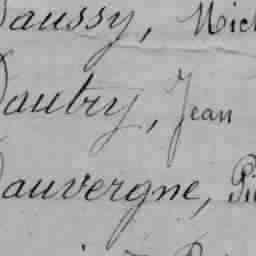 Daussy, Mich
Dautry, Jean
Dauvergne, Pi